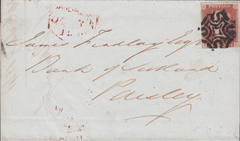 James Findlay Esqr
Bank of Scotland
Paisley